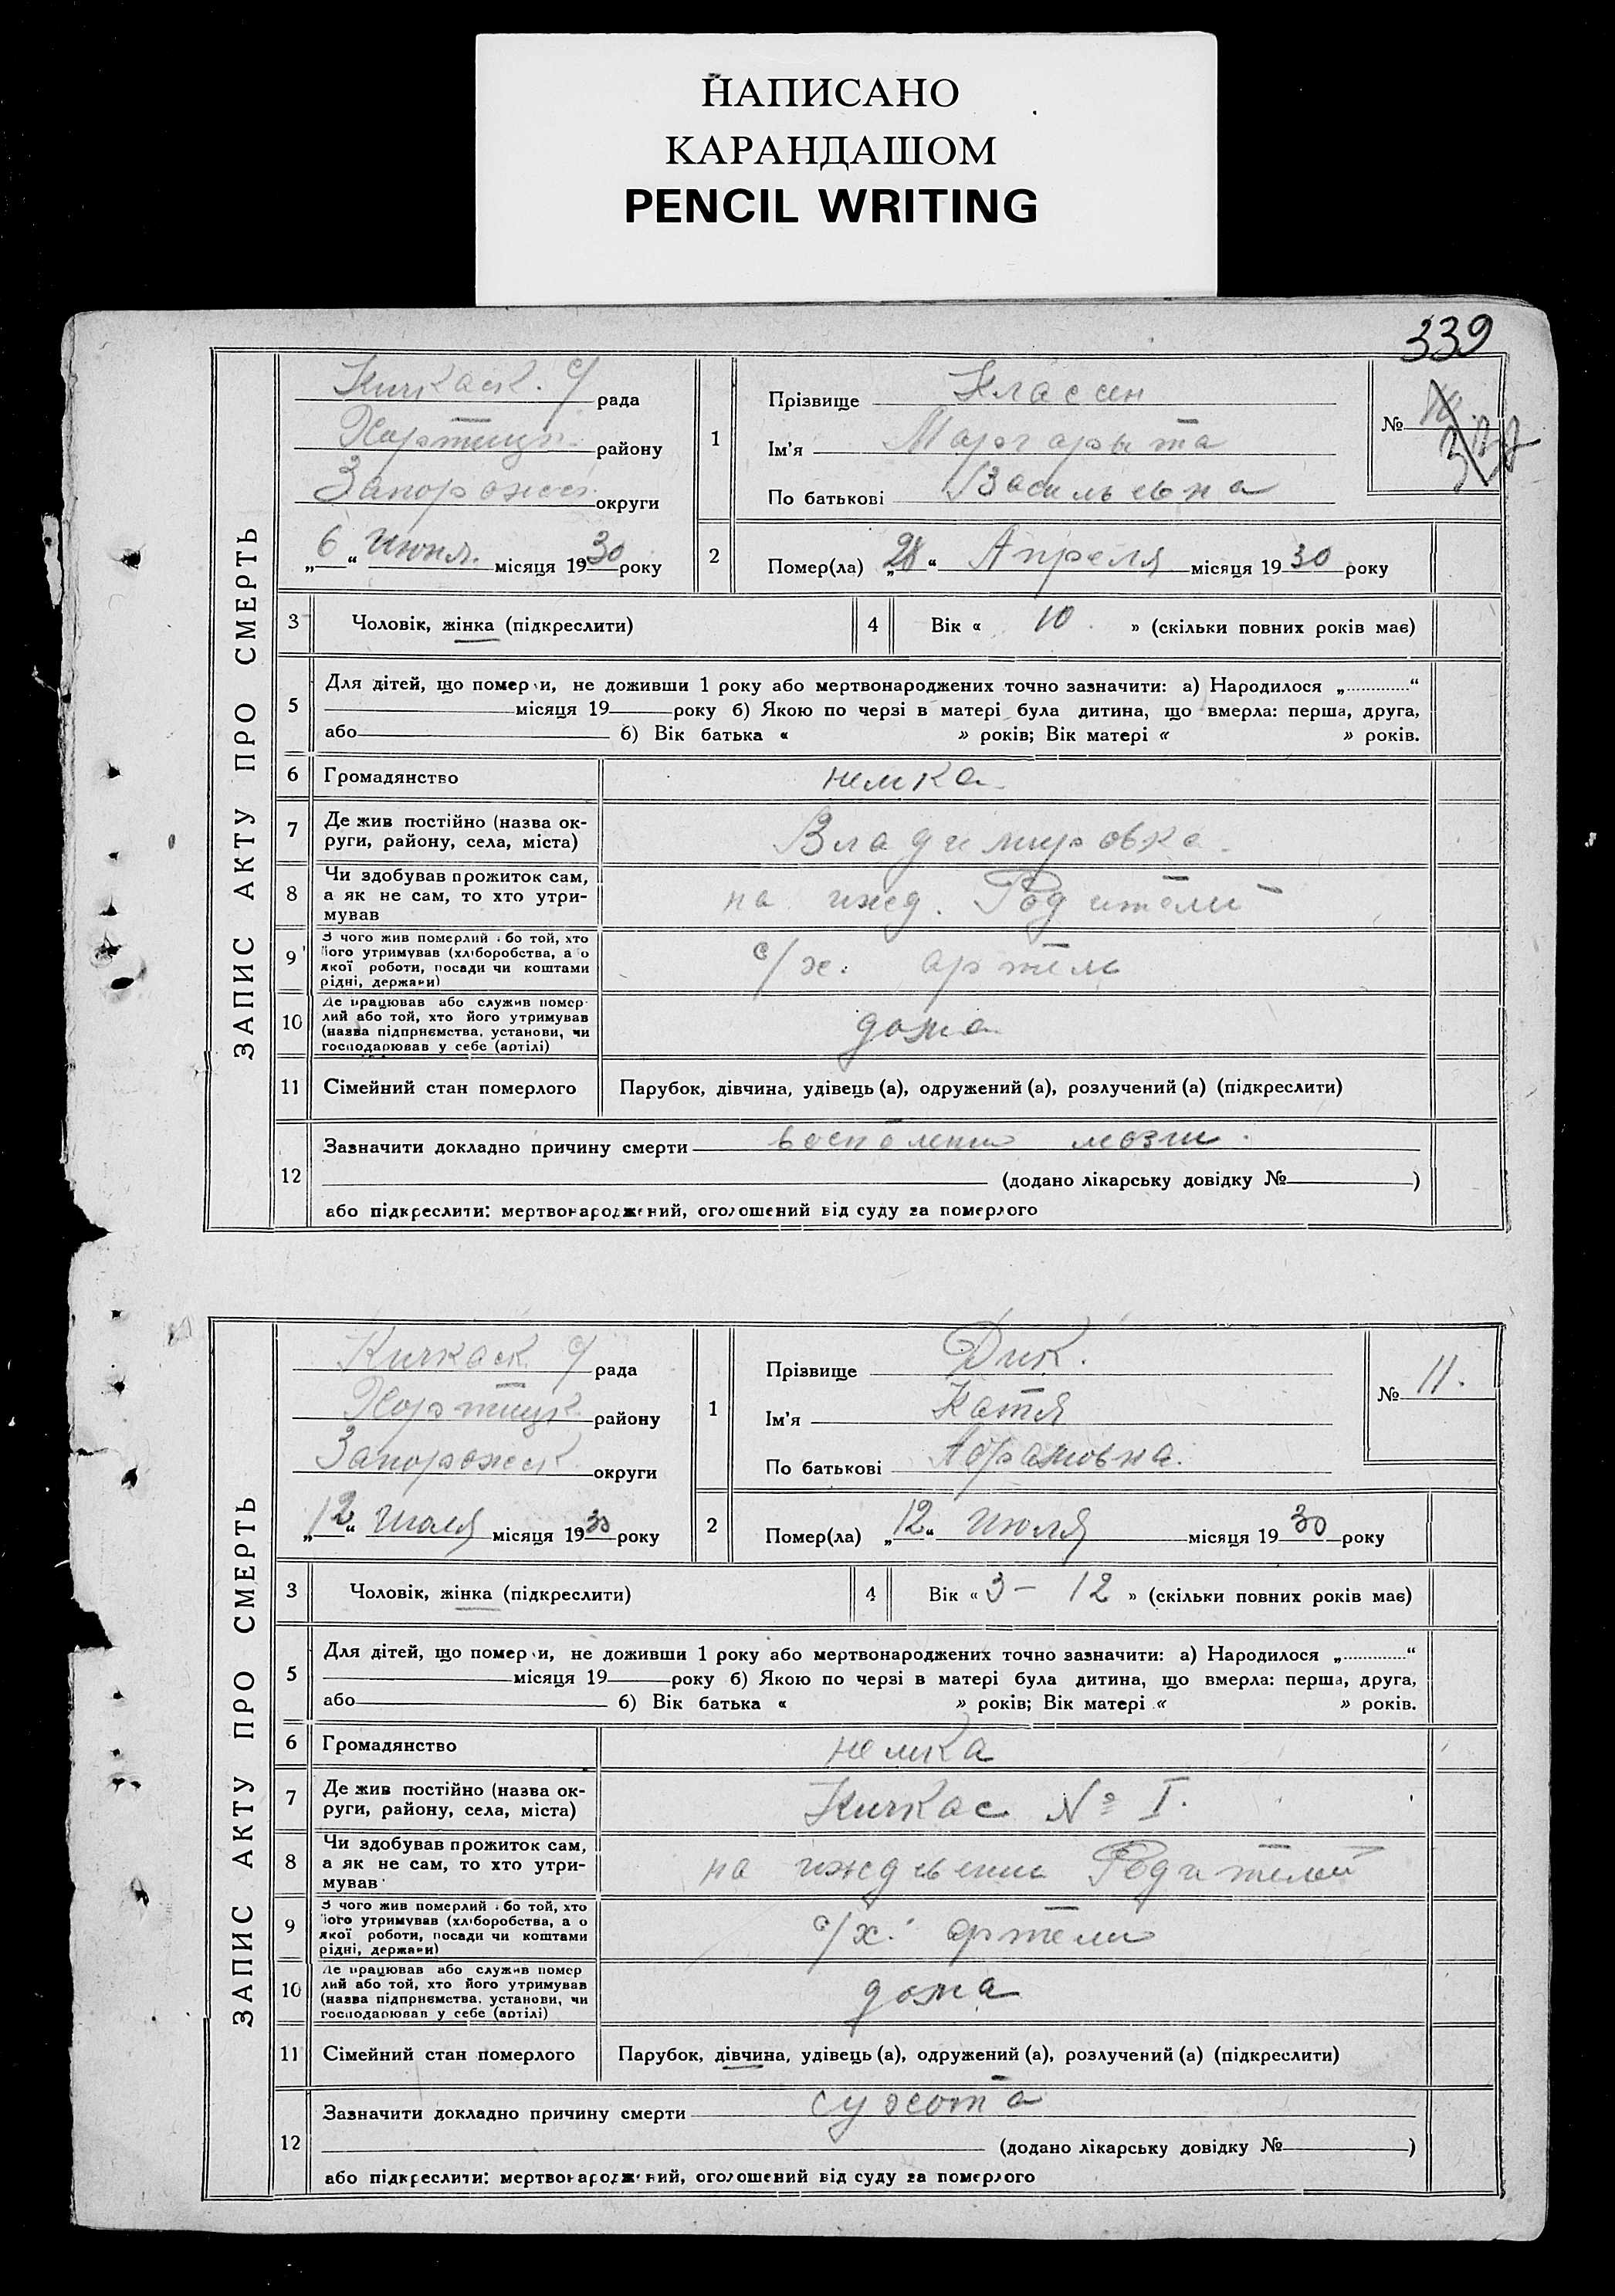 НАПИСАНО
КАРАНДАШОМ
PENCIL WRITING
339
ЗАПИС АКТУ ПРО СМЕРТЬ
Кичкаск. с/ рада
Хортицк. району
Запорожск. округи
„6“ Июня. місяця 1930 року
1
Прізвище Классен
Ім'я Маргарыта
По батькові Васильевна
№ 10.
2
Помер(ла) „28“ Апреля місяця 1930 року
3 Чоловік, жінка (підкреслити)
4 Вік « 10 » (скільки повних років має)
5 Для дітей, що померли, не доживши 1 року або мертвонароджених точно зазначити: а) Народилося „ “
місяця 19 року б) Якою по черзі в матері була дитина, що вмерла: перша, друга,
або б) Вік батька « » років; Вік матері « » років.
6 Громадянство немка
7 Де жив постійно (назва ок-
руги, району, села, міста) Владимировка.
8 Чи здобував прожиток сам,
а як не сам, то хто утри-
мував на ижд. Родителей
9 З чого жив померлий або той, хто
його утримував (хліборобства, а о
якої роботи, посади чи коштами
рідні, держави) с/х. артель
10 Де працював або служив помер-
лий або той, хто його утримував
(назва підприємства, установи, чи
господарював у себе (артілі) дома
11 Сімейний стан померлого Парубок, дівчина, удівець (а), одружений (а), розлучений (а) (підкреслити)
12 Зазначити докладно причину смерти воспаления мозги.
(додано лікарську довідку № )
або підкреслити: мертвонароджений, оголошений від суду за померлого
ЗАПИС АКТУ ПРО СМЕРТЬ
Кичкаск. с/ рада
Хортицк. району
Запорожск округи
„12“ Июля місяця 1930 року
1
Прізвище Дик.
Ім'я Катя
По батькові Абрамовна.
№ 11.
2
Помер(ла) „12“ Июля місяця 1930 року
3 Чоловік, жінка (підкреслити)
4 Вік « 3 — 12 » (скільки повних років має)
5 Для дітей, що померли, не доживши 1 року або мертвонароджених точно зазначити: а) Народилося „ “
місяця 19 року б) Якою по черзі в матері була дитина, що вмерла: перша, друга,
або б) Вік батька « » років; Вік матері « » років.
6 Громадянство немка
7 Де жив постійно (назва ок-
руги, району, села, міста) Кичкас № I.
8 Чи здобував прожиток сам,
а як не сам, то хто утри-
мував на Родителей
9 З чого жив померлий або той, хто
його утримував (хліборобства, а о
якої роботи, посади чи коштами
рідні, держави) с/х. артели
10 Де працював або служив помер
лий або той, хто його утримував
(назва підприємства, установи, чи
господарював у себе (артілі) дома
11 Сімейний стан померлого Парубок, дівчина, удівець (а), одружений (а), розлучений (а) (підкреслити)
12 Зазначити докладно причину смерти сухота
(додано лікарську довідку № )
або підкреслити: мертвонароджений, оголошений від суду за померлого